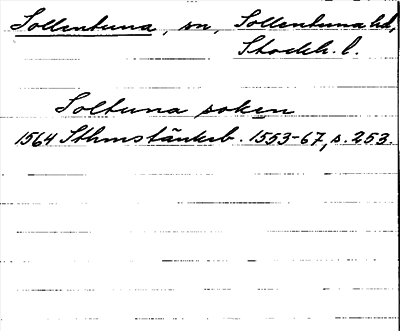 Sollentuna, sn, Sollentuna hd,
Stockh. l.
Soltuna soken
1564 Sthmstänkeb. 1553-67, s. 253.